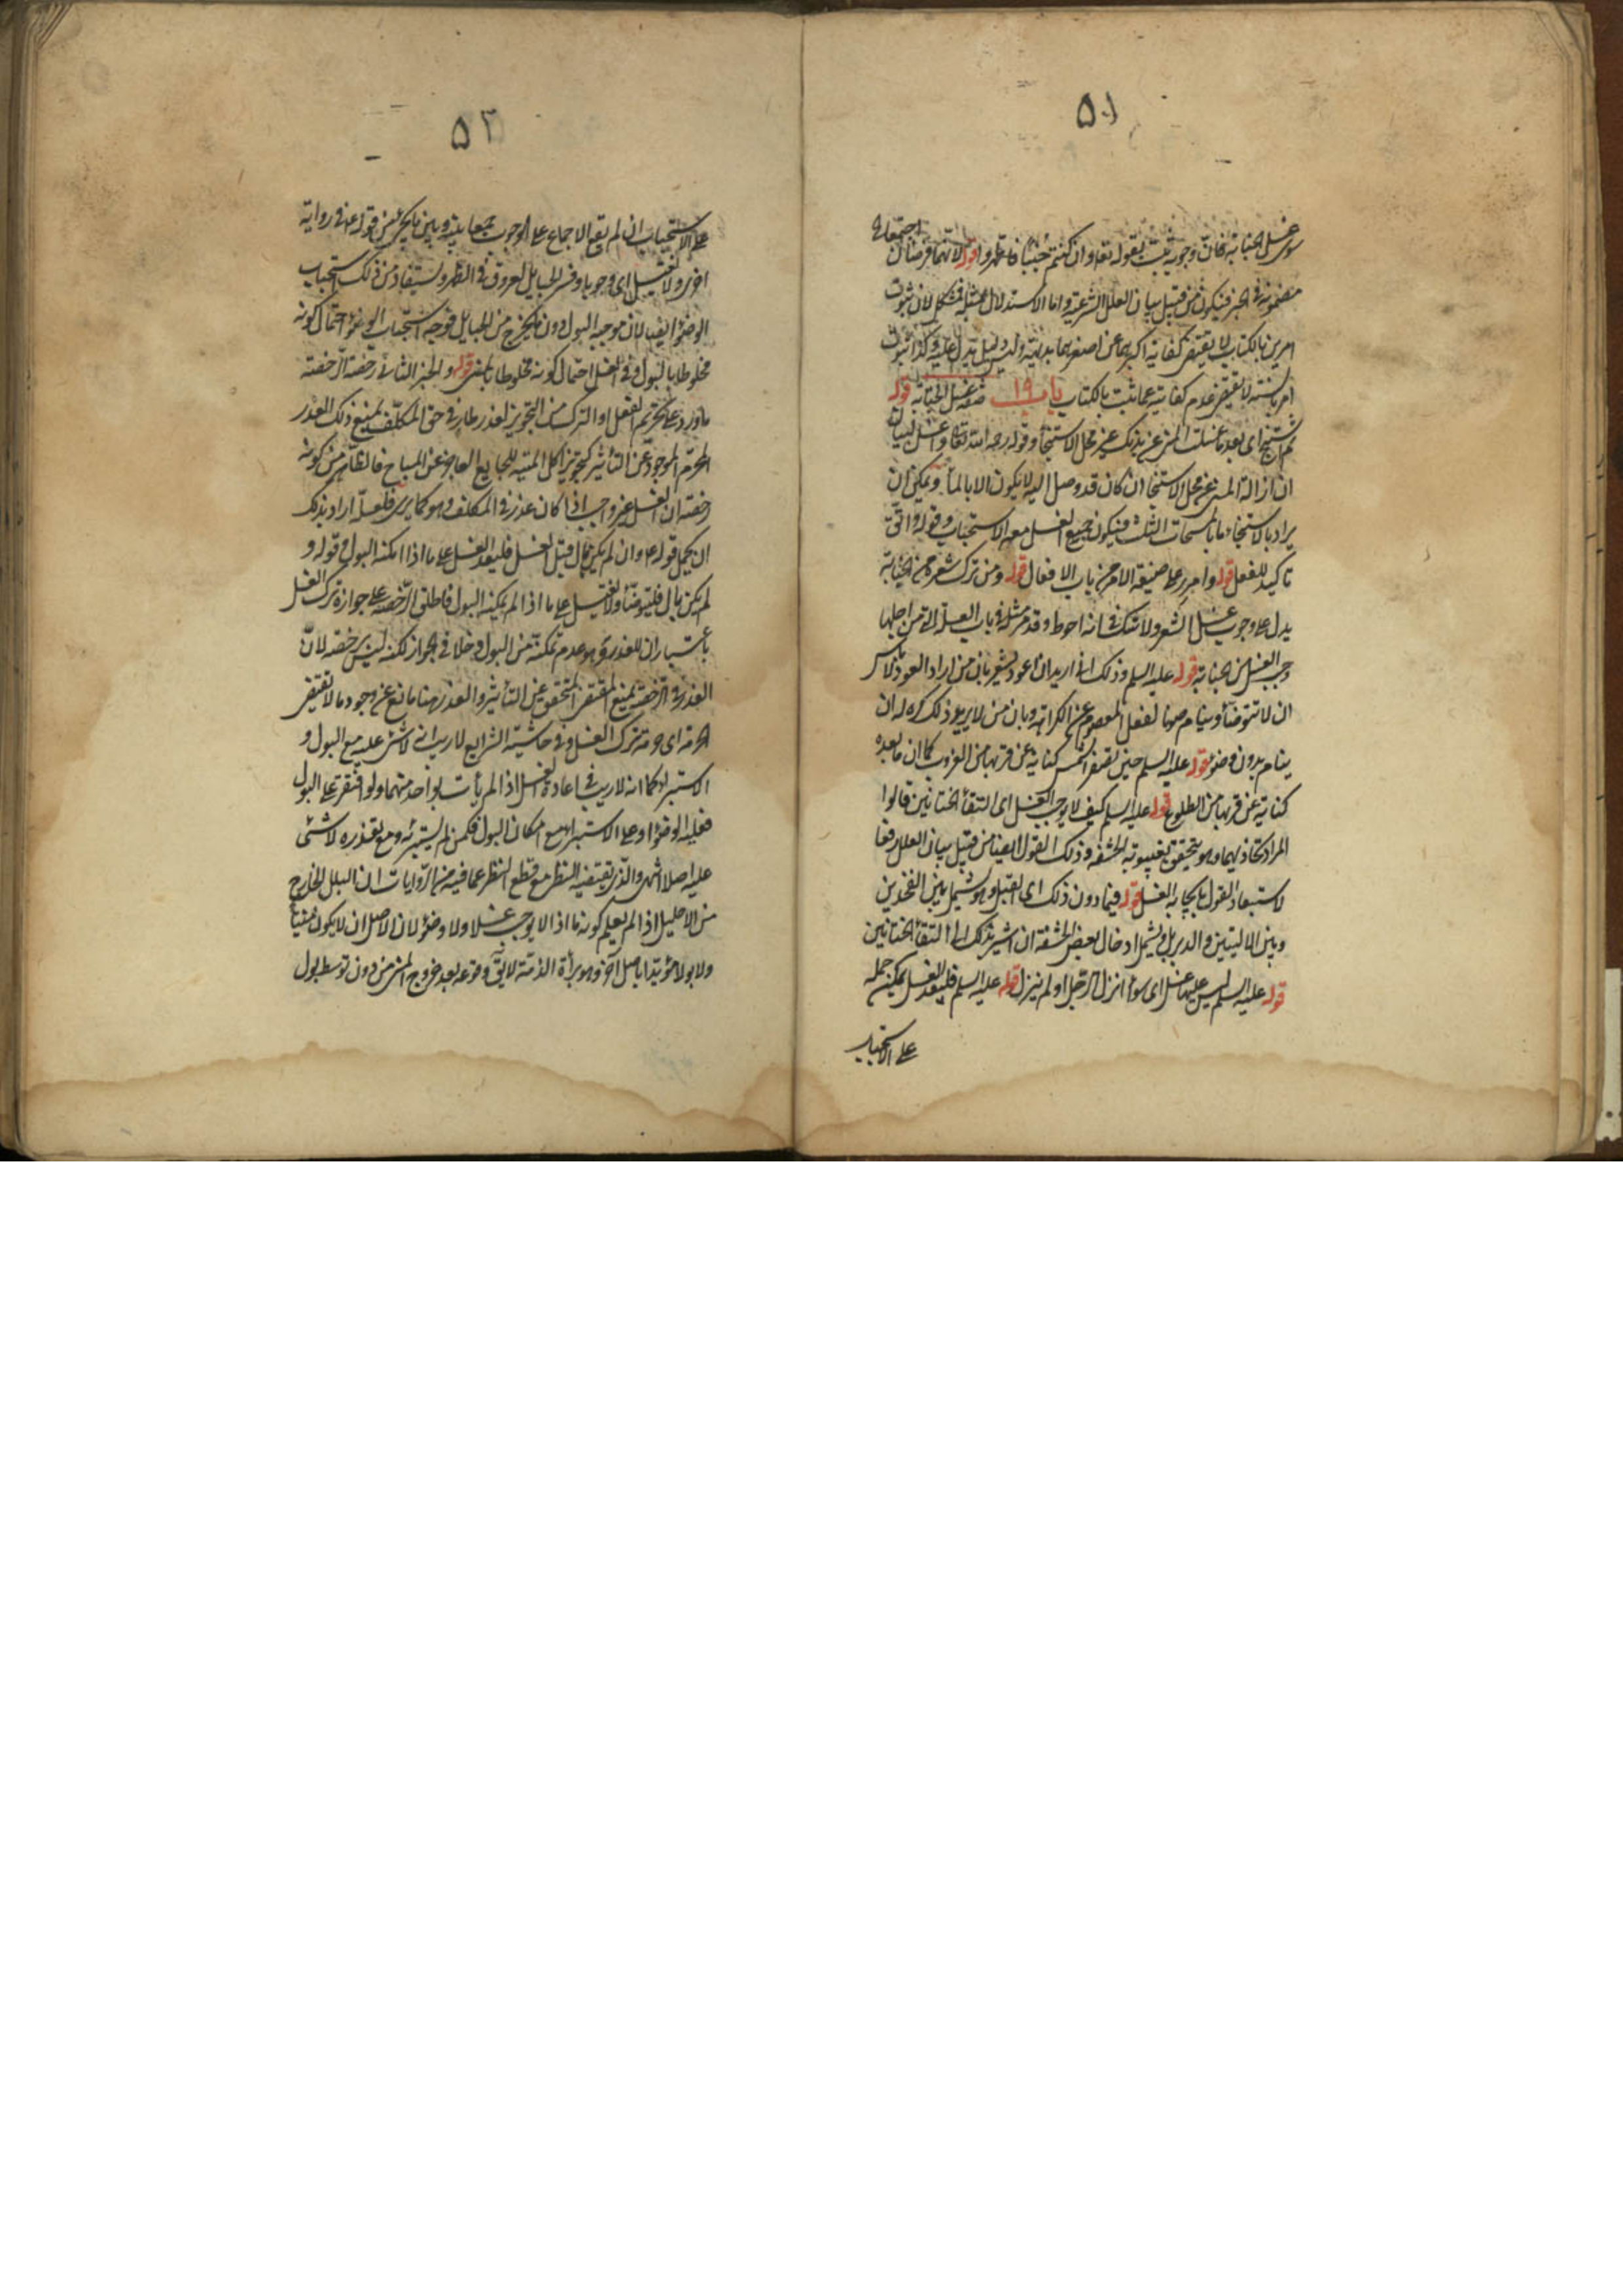 ٥١
سوى غسل الجنابة فان وجوبه يثبت بقوله تعه وان كنتم جنبا فاطهروا قوله لانهما فرضان اجتمعا في
مضمونه في الخبر فيكون من قبيل بيان العلل الشرعية واما الاستدلال بمثله فمشكل لان ثبوت
امرين بالكتاب لا يقتضي كفاية اكبرهما عن اصغرهما بديهية وليس دليل يدل عليه وكذا ثبوت
امر بالسنة لا يقتضي عدم كفايته عما ثبت بالكتاب باب ١٩ صفة غسل الجنابة قوله
ثم استنج اى بعد ما غسلت المنى عن بدنك غير محل الاستنجاء وقوله رحمه الله تعالى واغسل لبيان
ان ازالة المنى عن محل الاستنجا ان كان قد وصل اليه لا يكون الا بالماء ويمكن ان
يراد بالاستنجاء ما بالمسحات الثلث فيكون جميع الغسل معه الاستحباب وقوله وانق
تاكيد للفعل قوله وامرر على صيغة الامر من باب الافعال قوله ومن ترك شعرة من الجنابة
يدل على وجوب غسل الشعر ولا شك في انه احوط وقد مر مثله في باب العلة التي من اجلها
وجب الغسل من الجنابة قوله عليه السلم وذلك انى اريد ان اعود يشعر بان من اراد العود فلا باس
ان لا يتوضأ وينام صونا لفعل المعصوم عن الكراهة وبان من لا يريد ذلك كره له ان
ينام بدون وضوء قوله عليه السلم حين تصفر الشمس كناية عن قربها من الغروب كما ان ما بعده
كناية عن قربها من الطلوع قوله عليه السلم كيف لا يوجب الغسل اى التقاء الختانين قالوا
المراد تحاذيهما وهو يتحقق بغيبوبة الحشفة وذلك القول ايضا من قبيل بيان العلل رفعا
لاستبعاد القول بايجابه الغسل قوله فيما دون ذلك اى القبل وهو يشمل بين الفخذين
وبين الاليتين والدبر بل يشمل ادخال بعض الحشفة ان اشير بذلك الى التقاء الختانين
قوله عليه السلم ليس عليهما غسل اى سواء انزل الرجل او لم ينزل قوله عليه السلم فليعد الغسل يمكن حمله
على الاستحباب
٥٢
على الاستحباب ان لم يقع الاجماع على الوجوب جمعا بينه وبين ما يجئ من قوله عه في رواية
اخرى ولا يغتسل اى وجوبا وفسر الحبايل بعروق في الظهر ويستفاد من ذلك استحباب
الوضوء ايضا لان موجبه البول دون ما يخرج من الحبايل فوجه استحباب الوضوء احتمال كونه
مخلوطا بالبول وفي الغسل احتمال كونه مخلوطا بالمنى قوله والخبر الثاني رخصة الرخصة
ما ورد على تحريم الفعل او الترك من التجويز لعذر طار في حق المكلف يمنع ذلك العذر
المحرم الموجود عن التأثير كتجويز اكل الميتة للجايع العاجز عن المباح فالظاهر من كونه
رخصة ان الغسل غير واجب اذا كان عذر في المكلف وهو كما يرى فلعله اراد بذلك
ان يحمل قوله عه وان لم يكن بال قبل الغسل فليعد الغسل على ما اذا امكنه البول وقوله و
لم يكن بال فليتوضأ ولا يغتسل على ما اذا لم يمكنه البول فاطلق الرخصة على جواز ترك الغسل
باعتبار ان للعذر وهو عدم تمكنه من البول دخلا في الجواز لكنه ليس برخصة لان
العذر في الرخصة يمنع المقتضي المتحقق عن التأثير والعذر هنا مانع عن وجود ما لا يقتضي
حرمة اى حرمة ترك الغسل وفي حاشية الشرايع لا ريب انه لا شئ عليه مع البول و
الاستبراء كما انه لا ريب في اعادة الغسل اذا لم يأت بواحد منهما ولو اقتصر على البول
فعليه الوضوء او على الاستبراء مع امكان البول فكمن لم يستبرئ ومع تعذره لا شئ
عليه اصلا انتهى والذى يقتضيه النظر مع قطع النظر عما فيه من الروايات ان البلل الخارج
من الاحليل اذا لم يعلم كونه ماذا لا يوجب غسلا ولا وضوء لان الاصل ان لا يكون منيا
ولا بولا مؤيدا باصل آخر وهو براءة الذمة لا يق وقوعه بعد خروج المنى من دون توسط بول